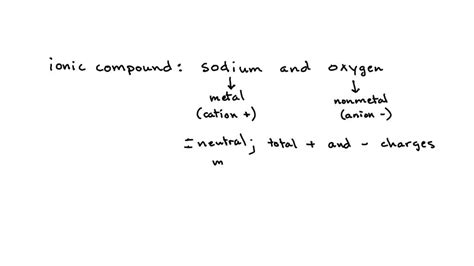 ionic compound: sodium and oxygen
metal nonmetal
(cation +) (anion -)
= neutral; total + and - charges
m